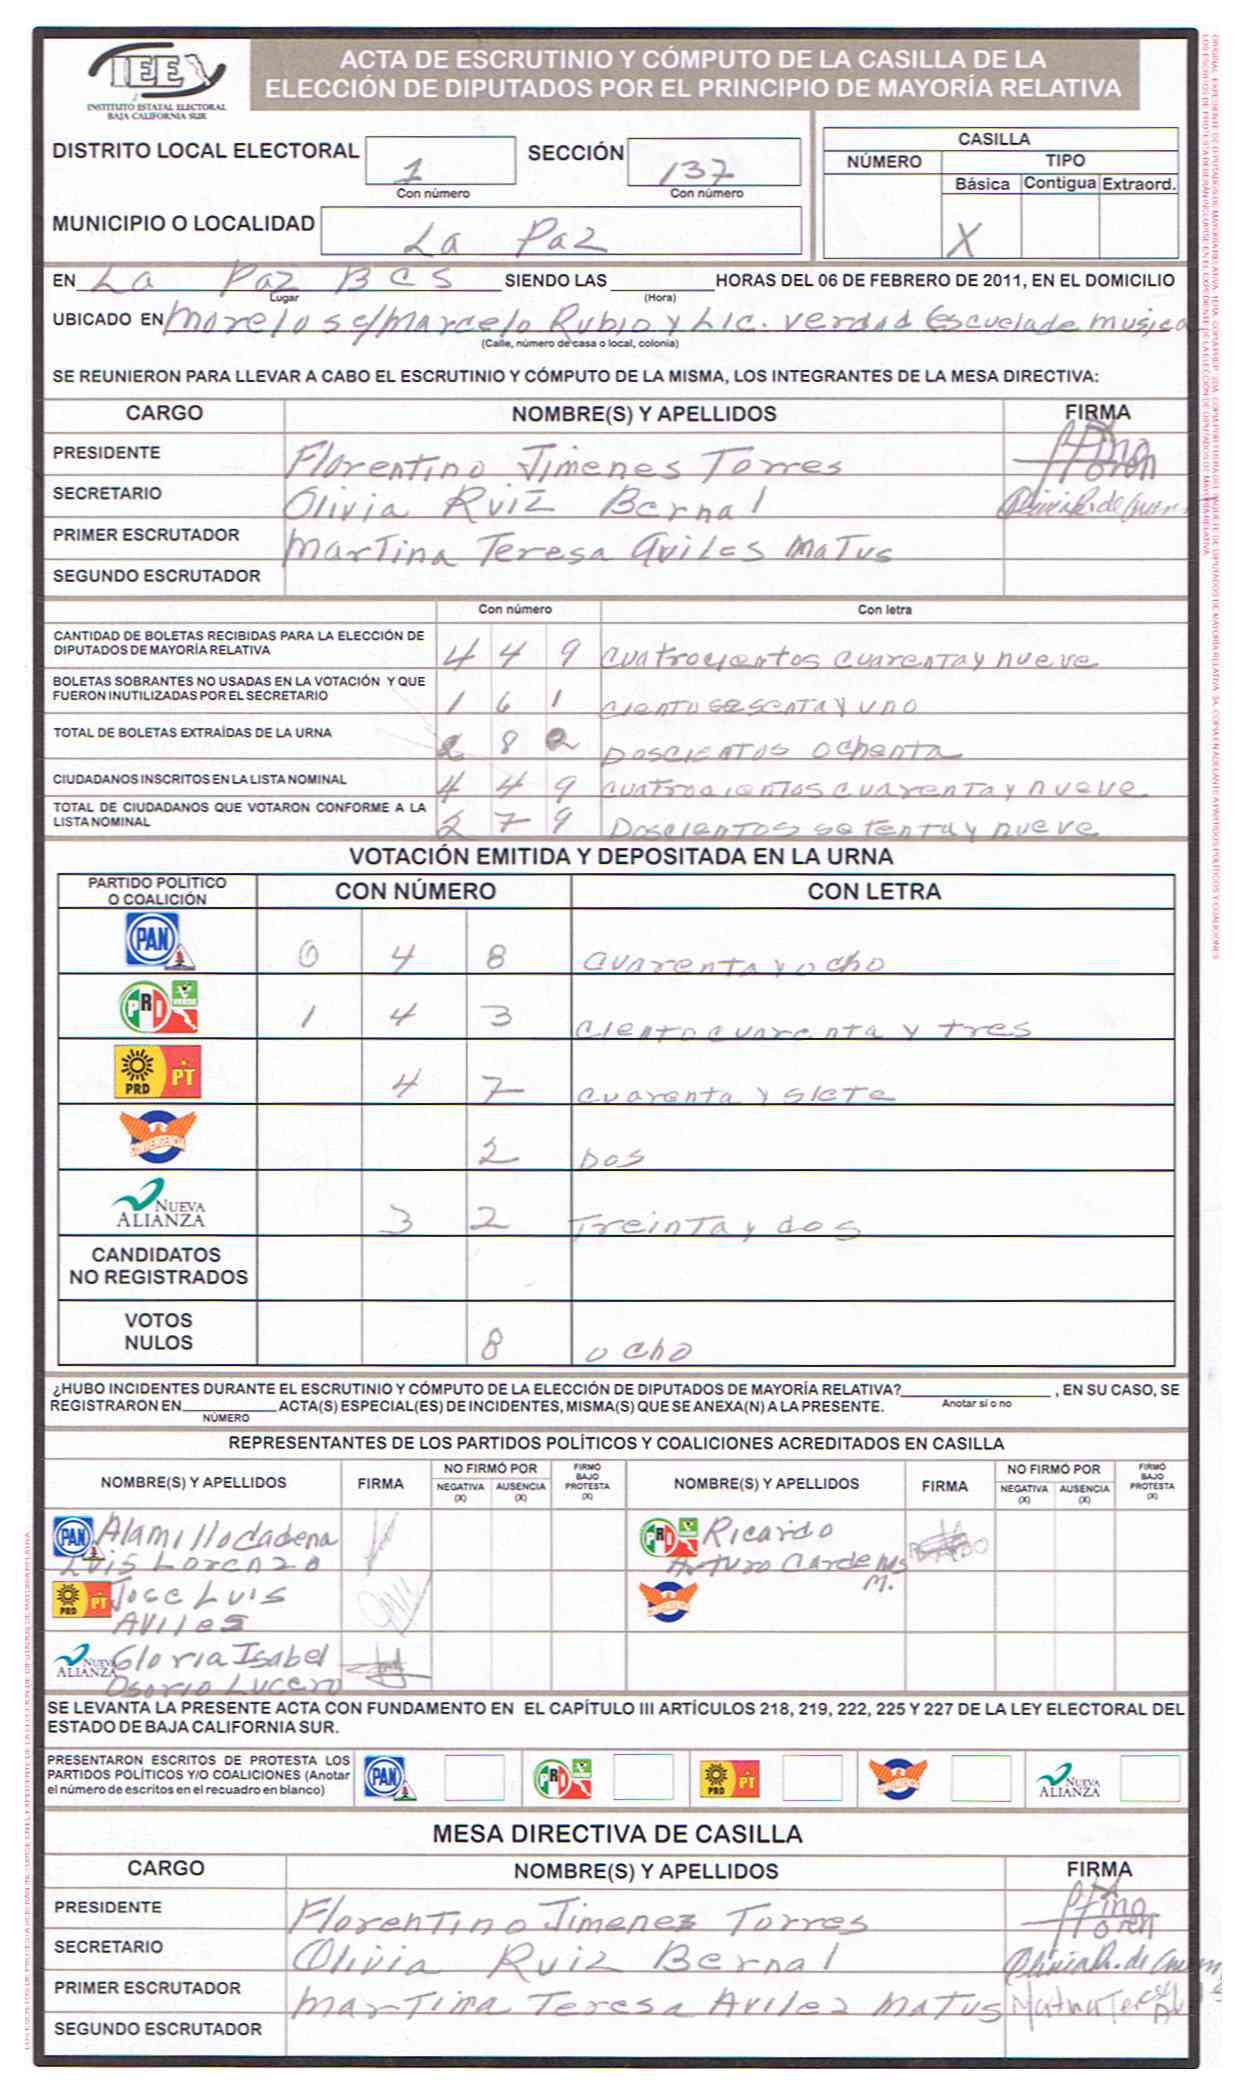 IEEX
INSTITUTO ESTATAL ELECTORAL
BAJA CALIFORNIA SUR
ACTA DE ESCRUTINIO Y CÓMPUTO DE LA CASILLA DE LA
ELECCIÓN DE DIPUTADOS POR EL PRINCIPIO DE MAYORÍA RELATIVA
DISTRITO LOCAL ELECTORAL 1 SECCIÓN 137
Con número Con número
CASILLA
NÚMERO TIPO
Básica Contigua Extraord.
X
MUNICIPIO O LOCALIDAD La Paz
EN La Paz BCS SIENDO LAS HORAS DEL 06 DE FEBRERO DE 2011, EN EL DOMICILIO
Lugar (Hora)
UBICADO EN Morelos e/Marcelo Rubio y Lic. Verdad Escuela de musica
(Calle, número de casa o local, colonia)
SE REUNIERON PARA LLEVAR A CABO EL ESCRUTINIO Y CÓMPUTO DE LA MISMA, LOS INTEGRANTES DE LA MESA DIRECTIVA:
CARGO NOMBRE(S) Y APELLIDOS FIRMA
PRESIDENTE Florentino Jimenes Torres
SECRETARIO Olivia Ruiz Bernal
PRIMER ESCRUTADOR Martina Teresa Aviles Matus
SEGUNDO ESCRUTADOR
Con número Con letra
CANTIDAD DE BOLETAS RECIBIDAS PARA LA ELECCIÓN DE
DIPUTADOS DE MAYORÍA RELATIVA 4 4 9 cuatrocientos cuarenta y nueve
BOLETAS SOBRANTES NO USADAS EN LA VOTACIÓN Y QUE
FUERON INUTILIZADAS POR EL SECRETARIO 1 6 1 ciento sesenta y uno
TOTAL DE BOLETAS EXTRAÍDAS DE LA URNA 2 8 Doscientos ochenta
CIUDADANOS INSCRITOS EN LA LISTA NOMINAL 4 4 9 cuatrocientos cuarenta y nueve
TOTAL DE CIUDADANOS QUE VOTARON CONFORME A LA
LISTA NOMINAL 2 7 9 Doscientos setenta y nueve
VOTACIÓN EMITIDA Y DEPOSITADA EN LA URNA
PARTIDO POLÍTICO
O COALICIÓN CON NÚMERO CON LETRA
PAN 0 4 8 cuarenta y ocho
PRI VERDE 1 4 3 ciento cuarenta y tres
PRD PT 4 7 cuarenta y siete
CONVERGENCIA 2 Dos
NUEVA
ALIANZA 3 2 Treinta y dos
CANDIDATOS
NO REGISTRADOS
VOTOS
NULOS 8 ocho
¿HUBO INCIDENTES DURANTE EL ESCRUTINIO Y CÓMPUTO DE LA ELECCIÓN DE DIPUTADOS DE MAYORÍA RELATIVA? , EN SU CASO, SE
Anotar sí o no
REGISTRARON EN ACTA(S) ESPECIAL(ES) DE INCIDENTES, MISMA(S) QUE SE ANEXA(N) A LA PRESENTE.
NÚMERO
REPRESENTANTES DE LOS PARTIDOS POLÍTICOS Y COALICIONES ACREDITADOS EN CASILLA
NOMBRE(S) Y APELLIDOS FIRMA NO FIRMÓ POR NEGATIVA (X) AUSENCIA (X) FIRMÓ BAJO PROTESTA (X) NOMBRE(S) Y APELLIDOS FIRMA NO FIRMÓ POR NEGATIVA (X) AUSENCIA (X) FIRMÓ BAJO PROTESTA (X)
PAN Alamillo Cadena PRI VERDE Ricardo
Luis Lorenzo Arturo Cardenas
M.
PRD PT Jose Luis CONVERGENCIA
Aviles
NUEVA
ALIANZA Gloria Isabel
Osorio Lucero
SE LEVANTA LA PRESENTE ACTA CON FUNDAMENTO EN EL CAPÍTULO III ARTÍCULOS 218, 219, 222, 225 Y 227 DE LA LEY ELECTORAL DEL
ESTADO DE BAJA CALIFORNIA SUR.
PRESENTARON ESCRITOS DE PROTESTA LOS
PARTIDOS POLÍTICOS Y/O COALICIONES (Anotar
el número de escritos en el recuadro en blanco)
PAN PRI PRD PT CONVERGENCIA NUEVA ALIANZA
MESA DIRECTIVA DE CASILLA
CARGO NOMBRE(S) Y APELLIDOS FIRMA
PRESIDENTE Florentino Jimenez Torres
SECRETARIO Olivia Ruiz Bernal
PRIMER ESCRUTADOR Martina Teresa Avilez Matus
SEGUNDO ESCRUTADOR